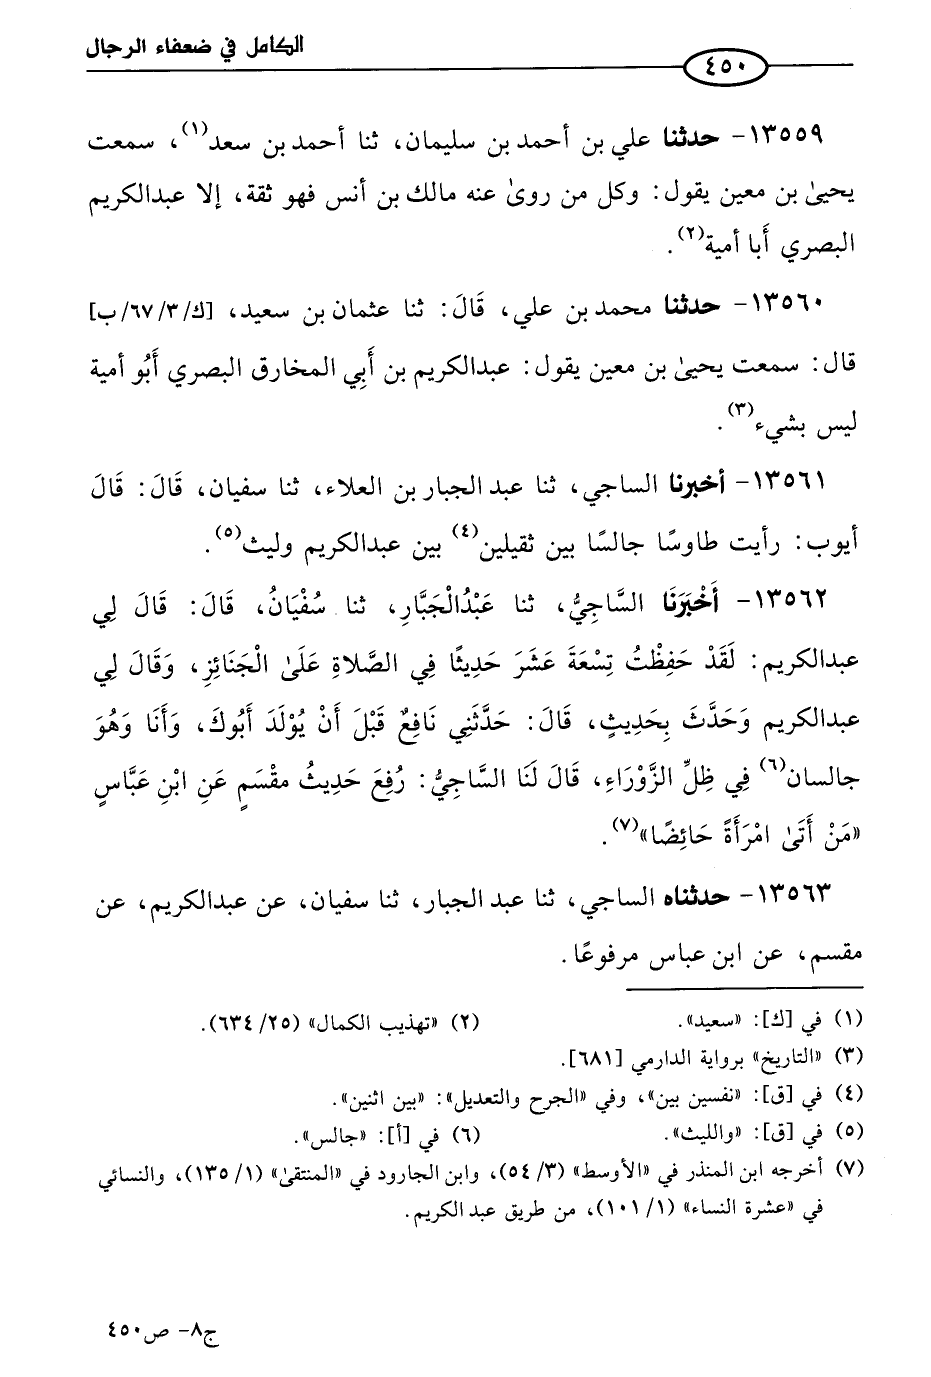 الكامل في ضعفاء الرجال
٤٥٠
١٣٥٥٩- حدثنا علي بن أحمد بن سليمان، ثنا أحمد بن سعد(١)، سمعت
يحيىٰ بن معين يقول: وكل من روىٰ عنه مالك بن أنس فهو ثقة، إلا عبدالكريم
البصري أَبا أمية(٢).
١٣٥٦٠- حدثنا محمد بن علي، قَالَ: ثنا عثمان بن سعيد، [ك/٦٧/٣/ب]
قال: سمعت يحيىٰ بن معين يقول: عبدالكريم بن أَبِي المخارق البصري أَبُو أمية
ليس بشيء(٣).
١٣٥٦١- أخبرنا الساجي، ثنا عبد الجبار بن العلاء، ثنا سفيان، قَالَ: قَالَ
أيوب: رأيت طاوسًا جالسًا بين ثقيلين(٤) بين عبدالكريم وليث(٥).
١٣٥٦٢- أَخْبَرَنَا السَّاجِيُّ، ثنا عَبْدُالْجَبَّارِ، ثنا سُفْيَانُ، قَالَ: قَالَ لِي
عبدالكريم: لَقَدْ حَفِظْتُ تِسْعَةَ عَشَرَ حَدِيثًا فِي الصَّلاةِ عَلَىٰ الْجَنَائِزِ، وَقَالَ لِي
عبدالكريم وَحَدَّثَ بِحَدِيثٍ، قَالَ: حَدَّثَنِي نَافِعٌ قَبْلَ أَنْ يُوْلَدَ أَبُوكَ، وَأَنَا وَهُوَ
جالسان(٦) فِي ظِلِّ الزَّوْرَاءِ، قَالَ لَنَا السَّاجِيُّ: رُفِعَ حَدِيثُ مقْسَمٍ عَنِ ابْنِ عَبَّاسٍ
«مَنْ أَتَىٰ امْرَأَةً حَائِضًا»(٧).
١٣٥٦٣- حدثناه الساجي، ثنا عبد الجبار، ثنا سفيان، عن عبدالكريم، عن
مقسم، عن ابن عباس مرفوعًا.
(١) في [ك]: «سعيد». (٢) «تهذيب الكمال» (٢٥/ ٦٣٤).
(٣) «التاريخ» برواية الدارمي [٦٨١].
(٤) في [ق]: «نفسين بين»، وفي «الجرح والتعديل»: «بين اثنين».
(٥) في [ق]: «والليث». (٦) في [أ]: «جالس».
(٧) أخرجه ابن المنذر في «الأوسط» (٣/ ٥٤)، وابن الجارود في «المنتقىٰ» (١/ ١٣٥)، والنسائي
في «عشرة النساء» (١/ ١٠١)، من طريق عبد الكريم.
ج٨- ص٤٥٠